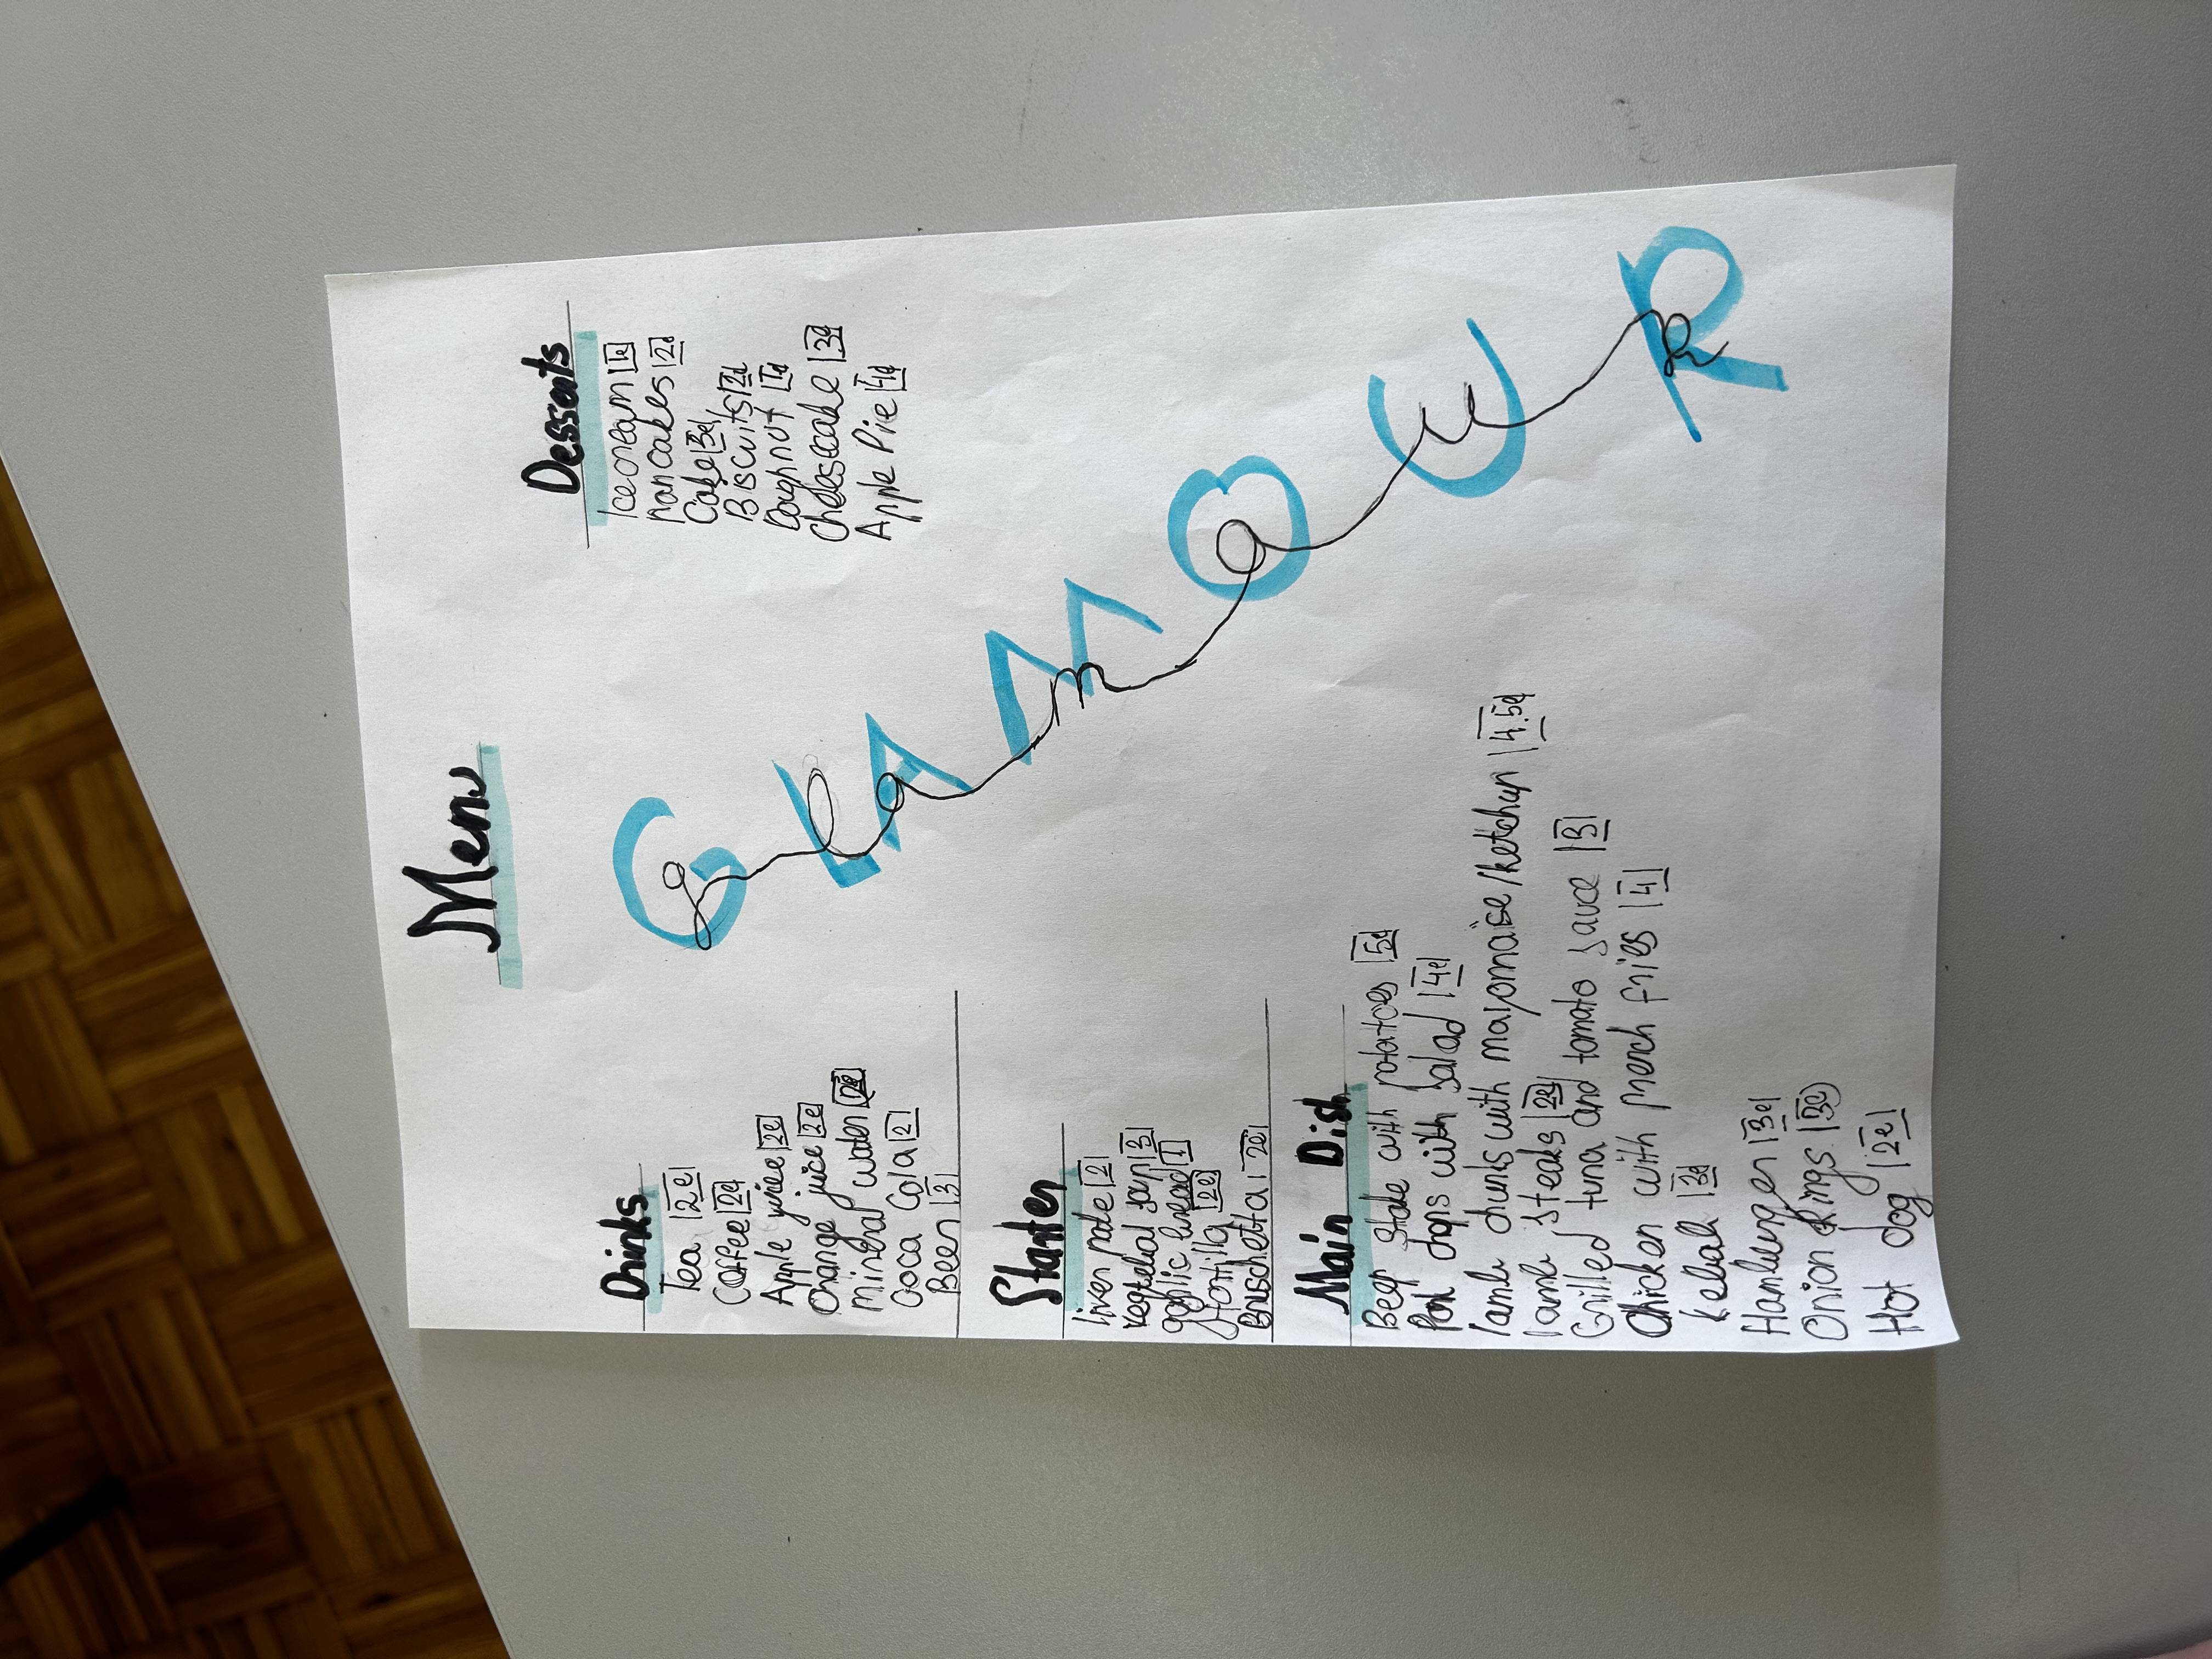 Menu
Drinks
Tea 2e
Coffee 2e
Apple juice 2e
Orange juice 2e
mineral water
Coca Cola 2
Beer 3
Starter
liver pate 2
vegetebal soup 3
garlic bread 1
tortilla 2e
Bruschetta 2e
Main Dish
Beef stake with potatoes 5e
Pork chops with salad 4e
lamb chunks with mayomaise/ketchup 4.5e
lamb steaks 2e
Grilled tuna and tomato sauce 3
Chicken with french fries 4
Kebab 3e
Hamburger 3e
Onion Rings 3e
Hot dog 2e
Desserts
Icecream 1e
pancakes 2e
Cake 3e
Biscuits 2e
Doughnut 1e
Cheesecake 3e
Apple Pie 4e
GLAMOUR
Glamour